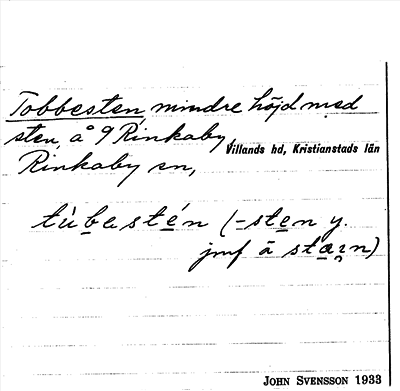 Tobbesten mindre höjd med
sten, å 9 Rinkaby,
Villands hd, Kristianstads län
Rinkaby sn,
tùbastén (-sten y.
jmf ā stæɪn)
JOHN SVENSSON 1933